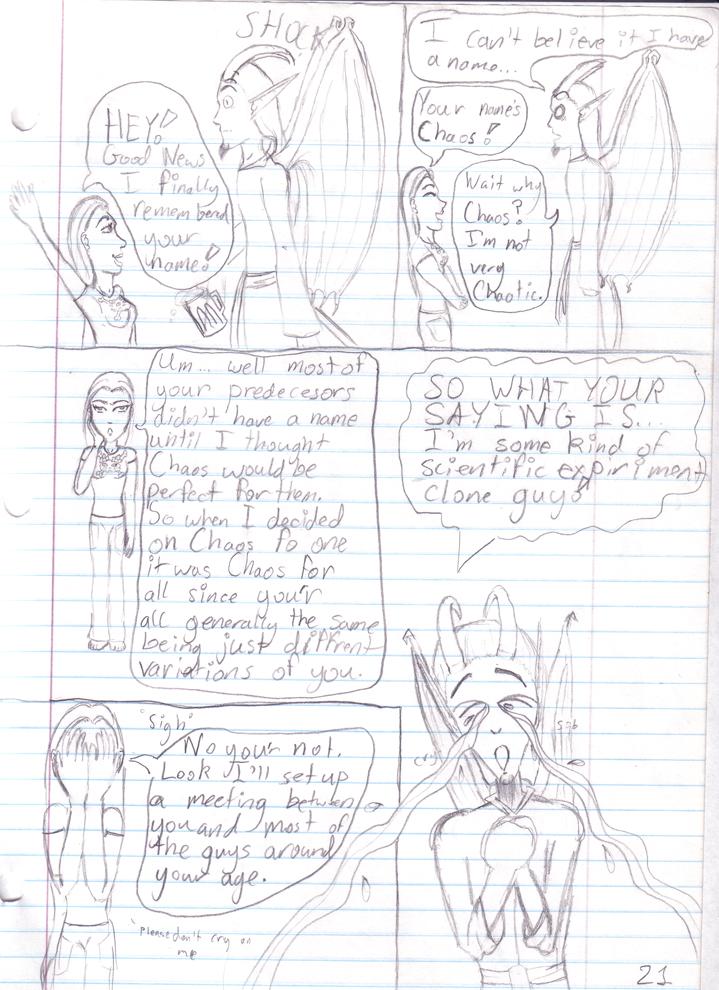 SHOCK
HEY!
Good News
I finally
remembered
your
name!
I can't believe it I have
a name...
Your name's
Chaos!
Wait why
Chaos?
I'm not
very
Chaotic.
Um... well most of
your predecesors
didn't have a name
until I thought
Chaos would be
perfect for them.
So when I decided
on Chaos fo one
it was Chaos for
all since you'r
all generally the same
being just diffrent
variations of you.
SO WHAT YOUR
SAYING IS...
I'm some kind of
scientific expiriment
clone guy?
cry
sob
"Sigh"
No your not.
Look I'll set up
a meeting between
you and most of
the guys around
your age.
"please don't cry on
me
21